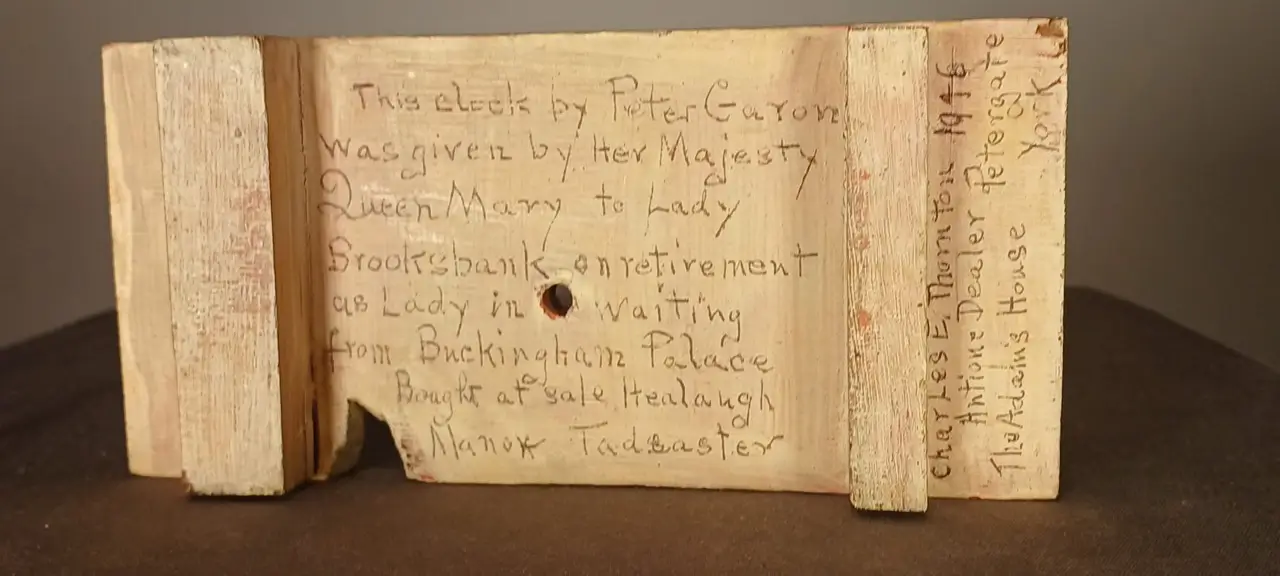 This clock by Peter Garon
was given by Her Majesty
Queen Mary to Lady
Brooksbank on retirement
as Lady in waiting
from Buckingham Palace
Bought at sale Healaugh
Manor Tadcaster
Charles E. Thornton 1946
Antique Dealer Petergate
The Adams House York